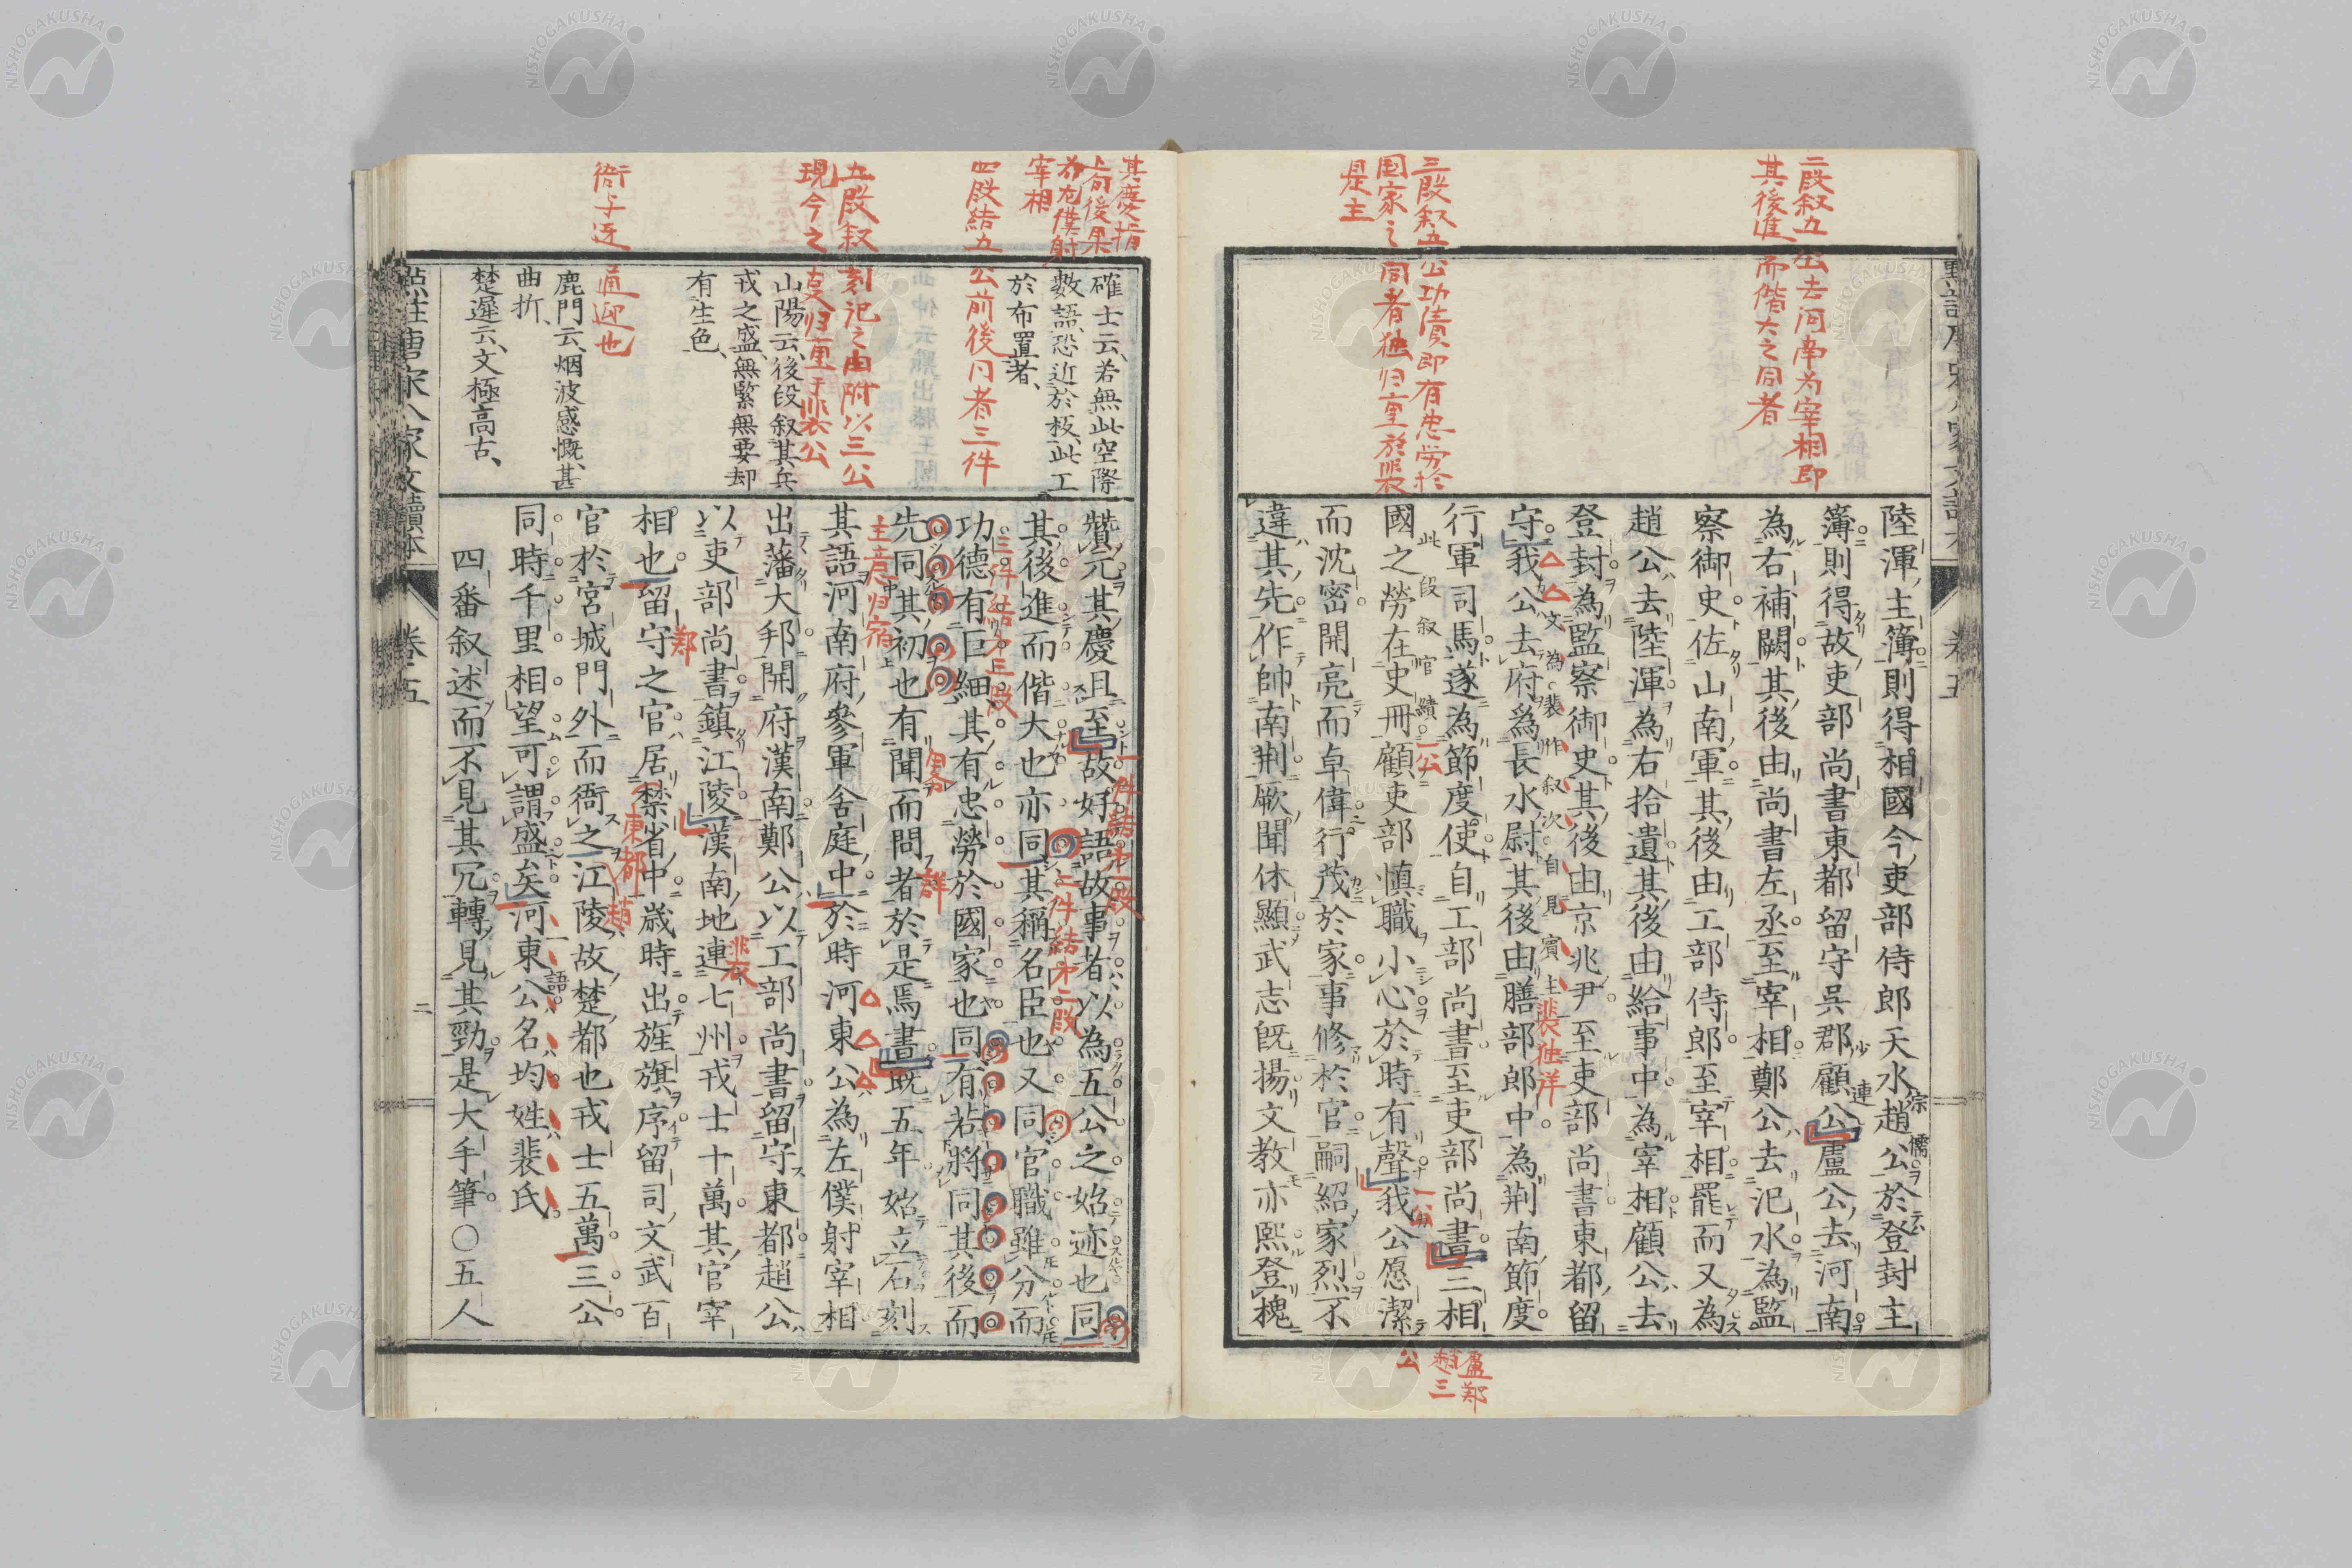 二段叙五公去河南为宰相即
其後進而偕大之同者
三段叙五公功績即有忠労於
国家之同者独归重於裴
是主
陸渾主簿則得相國今吏部侍郎天水趙公於登封主
宗儒
簿則得故吏部尚書東都留守呉郡顧公盧公去河南
少連
為右補闕其後由尚書左丞至宰相鄭公去汜水為監
察御史佐山南軍其後由工部侍郎至宰相罷而又為
趙公去陸渾為右拾遺其後由給事中為宰相顧公去
登封為監察御史其後由京兆尹至吏部尚書東都留
守我公去府爲長水尉其後由膳部郎中為荆南節度
文為裴作叙次自見賓主
裴独详
行軍司馬遂為節度使自工部尚書至吏部尚書三相
國之勞在史冊顧吏部慎職小心於時有聲我公愿潔
此段叙官績
一公
一公
而沈密開亮而卓偉行茂於家事修於官嗣紹家烈不
違其先作帥南荆厥聞休顯武志既揚文教亦熙登槐
盧鄭
趙三
公
其慶指
上句後果
为左僕射
宰相
四段結五公前後同者三件
五段叙刻记之由附以三公
現今之
归重于裴公
衙与迓通迎也
確士云、若無此空際
數語、恐近於板、此工
於布置者、
山陽云、後段叙其兵
戎之盛、無緊無要却
有生色、
鹿門云、烟波感慨、甚
曲折、
楚遲云、文極高古、
贊元其慶且至故好語故事者以為五公之始迹也同
一件結第一段
其後進而偕大也亦同其稱名臣也又同官職雖分而
二件結第二段
功德有巨細其有忠勞於國家也同有若將同其後而
三件結第三段
先同其初也有聞而問者於是焉書既五年始立石刻
畧
詳
其語河南府參軍舍庭中於時河東公為左僕射宰相
主意归宿
出藩大邦開府漢南鄭公以工部尚書留守東都趙公
以吏部尚書鎮江陵漢南地連七州戎士十萬其官宰
裴
相也留守之官居禁省中歳時出旌旗序留司文武百
鄭
官於宮城門外而衙之江陵故楚都也戎士五萬三公
東都
趙
同時千里相望可謂盛矣河東公名均姓裴氏
一語
四番叙述而不見其冗轉見其勁是大手筆○五人
點註唐宋八家文讀本
卷五
二
NISHOGAKUSHA